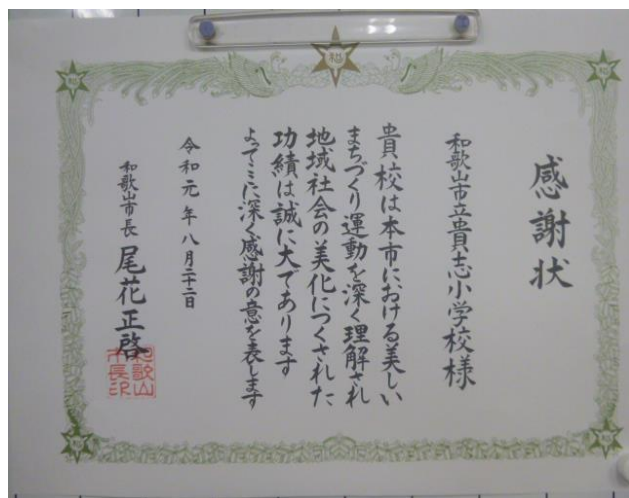 感謝状
和歌山市立貴志小学校様
貴校は本市における美しい
まちづくり運動を深く理解され
地域社会の美化につくされた
功績は誠に大であります
よってここに深く感謝の意を表します
令和元年八月二十二日
和歌山市長 尾花正啓